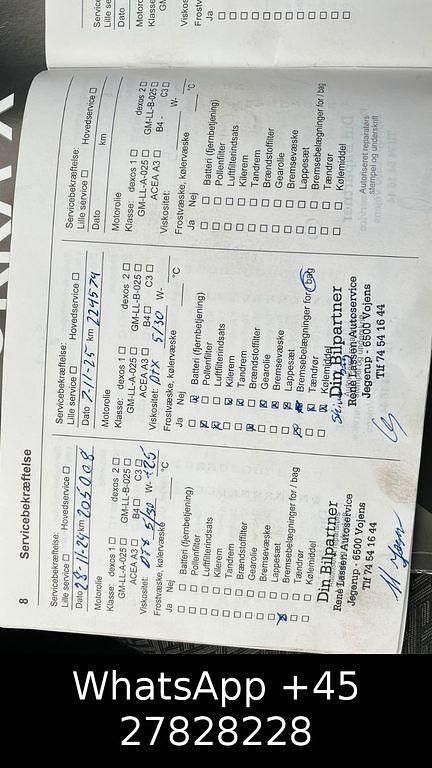 8
Servicebekræftelse
Servicebekræftelse:
Lille service ☐ Hovedservice ☐
Dato 28-11-24 km 205008
Motorolie
Klasse: dexos 1 ☐ dexos 2 ☐
GM-LL-A-025 ☐ GM-LL-B-025 ☐
ACEA A3 ☐ B4 ☐ C3 ☐
Viskositet: DTX 5/30 W-
Frostvæske, kølervæske -25 °C
Ja Nej
Batteri (fjernbetjening)
Pollenfilter
Luftfilterindsats
Kilerem
Tandrem
Brændstoffilter
Gearolie
Bremsevæske
Lappesæt
Bremsebelægninger for / bag
Tændrør
Kølemiddel
Din Bilpartner
René Lassen Autoservice
Jegerup - 6500 Vojens
Tlf 74 54 16 44
Servicebekræftelse:
Lille service ☐ Hovedservice ☐
Dato 7-11-25 km 224574
Motorolie
Klasse: dexos 1 ☐ dexos 2 ☐
GM-LL-A-025 ☐ GM-LL-B-025 ☐
ACEA A3 ☐ B4 ☐ C3 ☐
Viskositet: DTX 5/30 W-
Frostvæske, kølervæske °C
Ja Nej
Batteri (fjernbetjening)
Pollenfilter
Luftfilterindsats
Kilerem
Tandrem
Brændstoffilter
Gearolie
Bremsevæske
Lappesæt
Bremsebelægninger for / bag
Tændrør
Kølemiddel
Din Bilpartner
René Lassen Autoservice
Jegerup - 6500 Vojens
Tlf 74 54 16 44
Servicebekræftelse:
Lille service ☐ Hovedservice ☐
Dato km
Motorolie
Klasse: dexos 1 ☐ dexos 2 ☐
GM-LL-A-025 ☐ GM-LL-B-025 ☐
ACEA A3 ☐ B4 - C3 ☐
Viskositet: W-
Frostvæske, kølervæske °C
Ja Nej
Batteri (fjernbetjening)
Pollenfilter
Luftfilterindsats
Kilerem
Tandrem
Brændstoffilter
Gearolie
Bremsevæske
Lappesæt
Bremsebelægninger for / bag
Tændrør
Kølemiddel
Autoriseret reparatørs
stempel og underskrift
WhatsApp +45
27828228